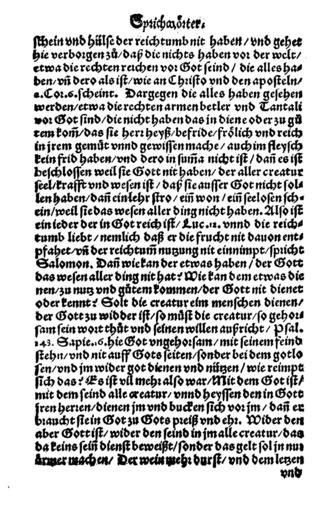 Sprichwörter.
schein vnd hülse der reichtumb nit haben/vnd gehet
hie verborgen zů/daß die nichts haben vor der welt/
etwa die rechten reichen vor Got seind/ die alles ha-
ben/vn̄ dero als ist/wie an Christo vnd den aposteln/
2.Cor.6.scheint. Dargegen die alles haben gesehen
werden/etwa die rechten armen betler vnd Tantali
vor Got sind/die nicht haben das in diene oder zu gů
tem kom̄/das sie herr heyß/befride/frölich vnd reich
in jrem gemüt vnnd gewissen mache/auch im fleysch
kein frid haben/vnd dero in sum̄a nicht ist/dan̄ es ist
beschlossen weil sie Got nit haben/der aller creatur
seel/krafft vnd wesen ist/daß sie ausser Got nicht sol-
len haben/dan̄ ein lehr stro/ein̄ won/ein̄ seelosen sch-
ein/weil sie das wesen aller ding nicht haben. Also ist
ein ieder der in Got reich ist/Luc.12.vnnd die reich-
tumb liebt/nemlich daß er die frucht nit dauon ent-
pfahet/vn̄ der reichtum̄ nutzung nit einnimpt/spricht
Salomon. Dan̄ wie kan der etwas haben/der Gott
das wesen aller ding nit hat? Wie kan dem etwas die
nen/zu nutz vnd gůtem kommen/der Gott nit dienet
oder kennt? Solt die creatur eim menschen dienen/
der Gott zu widder ist/so můst die creatur/so gehor-
sam sein wort thůt vnd seinen willen außricht/Psal.
143. Sapie.16.hie Got vngehorsam/mit seinem feind
stehn/vnd nit auff Gots seiten/sonder bei dem gotlo
sen/vnd im wider got dienen vnd nützen/wie reimpt
sich das? Es ist vil mehr also war/Mit dem Got ist/
mit dem seind alle creatur/vnnd heyssen den in Gott
jren herren/dienen jm vnd bucken sich vor jm/dan̄ er
braucht sie in Got zů Gots preiß vnd ehr. Wider den
aber Gott ist/wider den seind in jm alle creatur/das
da keins sein dienst beweißt/sonder das gelt sol jn nur
ärmer machen/ Der wein mehr durst/vnd dem letzen
vnd